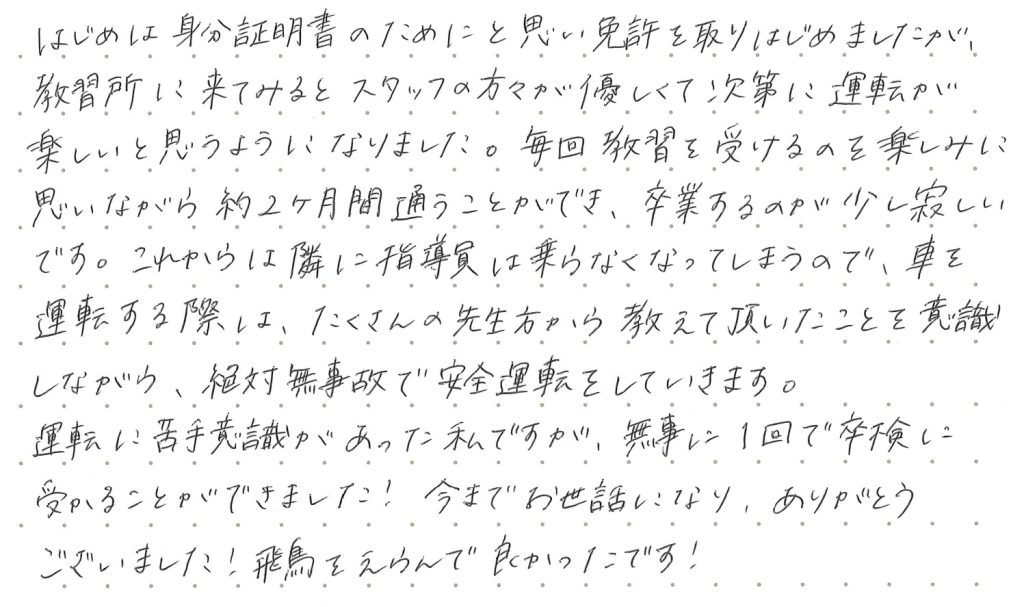 はじめは身分証明書のためにと思い免許を取りはじめましたが、
教習所に来てみるとスタッフの方々が優しくて次第に運転が
楽しいと思うようになりました。毎回教習を受けるのを楽しみに
思いながら約2ヶ月間通うことができ、卒業するのが少し寂しい
です。これからは隣に指導員は乗らなくなってしまうので、車を
運転する際は、たくさんの先生方から教えて頂いたことを意識
しながら、絶対無事故で安全運転をしていきます。
運転に苦手意識があった私ですが、無事に1回で卒検に
受かることができました！今までお世話になり、ありがとう
ございました！飛鳥をえらんで良かったです！